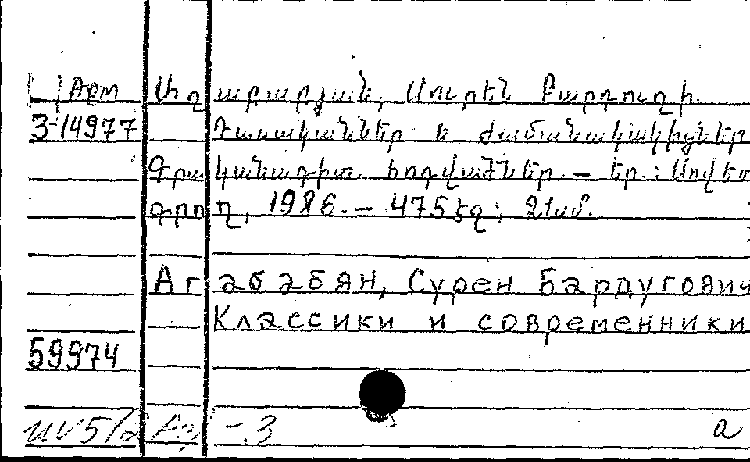 Арм Աղաբաբյան, Սուրեն Բարդուղի
3-14977 Դասականներ և ժամանակակիցներ
Գրականագիտ. հոդվածներ. – Եր.: Սովետ.
գրող, 1986. – 475 էջ; 21սմ.
Агабабян, Сурен Бардугович
Классики и современники
59974
-.3 а